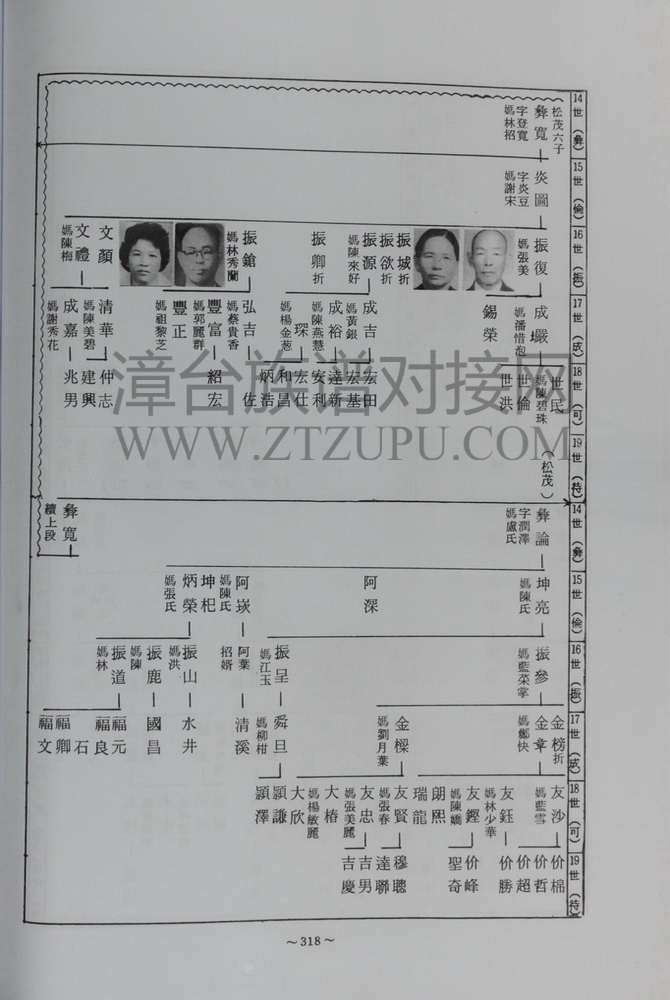 14世(彝)
15世(倫)
16世(振)
17世(成)
18世(可)
19世(待)
松茂六子
彝寬
字登寬
媽林招
炎圖
字炎豆
媽謝宋
振復
媽張美
振城折
振欲折
振源
媽陳來好
振卿折
振鎗
媽林秀蘭
文顏
文禮
媽陳梅
成嚴
媽潘惜泡
錫榮
成吉
媽黃銀
成裕
媽陳燕慧
琛
媽楊金葱
弘吉
媽蔡貴香
豐富
媽郭麗群
豐正
媽祖黎芝
清華
媽陳美碧
成嘉
媽謝秀花
世民
媽陳碧珠
世倫
世洪
宏田
宏基
達新
安利
宏仕
和昌
炳浩
佐
紹宏
仲志
建興
兆男
(松茂)
漳台族谱对接网
WWW.ZTZUPU.COM
14世(彝)
15世(倫)
16世(振)
17世(成)
18世(可)
19世(待)
彝論
字潤澤
媽盧氏
彝寬
續上段
坤亮
媽陳氏
阿深
阿崁
媽陳氏
坤杞
炳榮
媽張氏
振參
媽藍菜掌
振呈
媽江玉
阿葉
招婿
振山
媽洪
振鹿
媽陳
振道
媽林
金榜折
金章
媽鄭快
金樑
媽劉月葉
舜旦
媽柳柑
清溪
水井
國昌
福元
福良
石
福卿
福文
友沙
媽藍雪
友鈺
媽林少華
友鏗
媽陳嬌
朗熙
瑞龍
友賢
媽張春
友忠
媽張美麗
大椿
媽楊敏麗
大欣
穎謙
穎澤
价棉
价哲
价超
价勝
价峰
聖奇
穆聰
達聯
吉男
吉慶
～318～